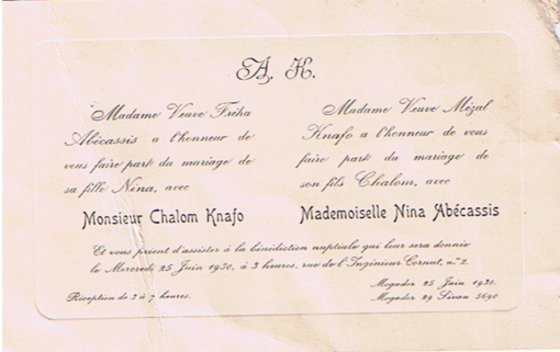 A. K.
Madame Veuve Fréha
Abécassis a l'honneur de
vous faire part du mariage de
sa fille Nina, avec
Monsieur Chalom Knafo
Madame Veuve Mizal
Knafo a l'honneur de vous
faire part du mariage de
son fils Chalom, avec
Mademoiselle Nina Abécassis
Et vous prient d'assister à la bénédiction nuptiale qui leur sera donnée
le Mercredi 25 Juin 1930, à 3 heures, rue de l'Ingénieur Cornut, n°.2.
Réception de 3 à 7 heures.
Mogador 25 Juin 1930.
Mogador 29 Sivan 5690